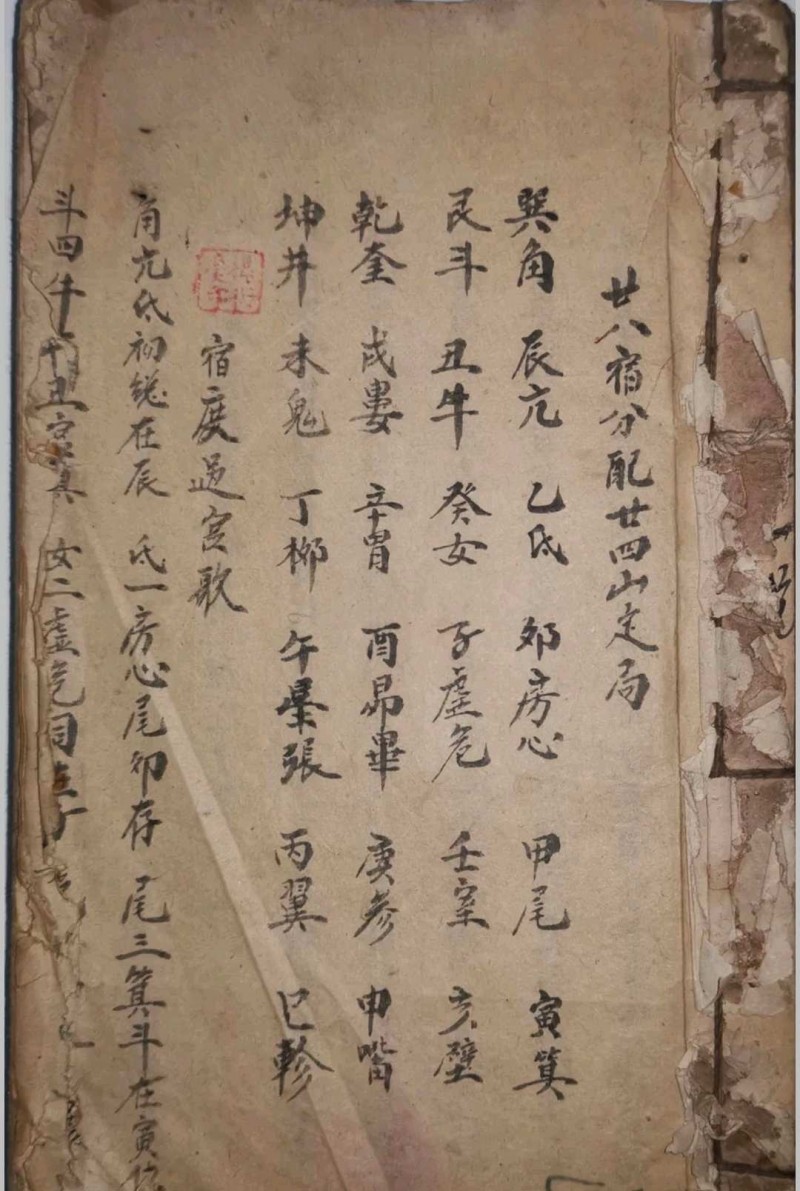 廿八宿分配廿四山定局
巽角 辰亢 乙氐 卯房心 甲尾 寅箕
艮斗 丑牛 癸女 子虛危 壬室 亥壁
乾奎 戌婁 辛胃 酉昴畢 庚參 申嘴
坤井 未鬼 丁柳 午星張 丙翼 巳軫
宿度過宮歌
角亢氐初總在辰 氐一房心尾卯存 尾三箕斗在寅
斗四牛 丑宮真 女二虛危同在子